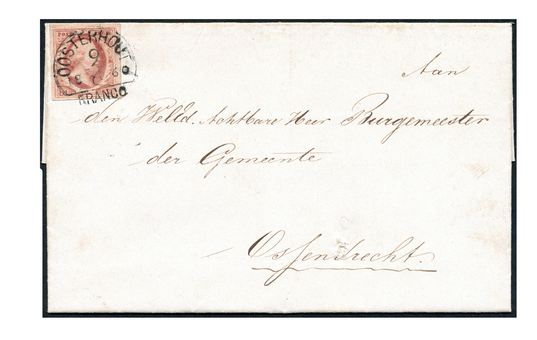 OOSTERHOUT
FRANCO
Aan
den Welld. Achtbare Heer Burgemeester
der Gemeente
Ossendrecht.